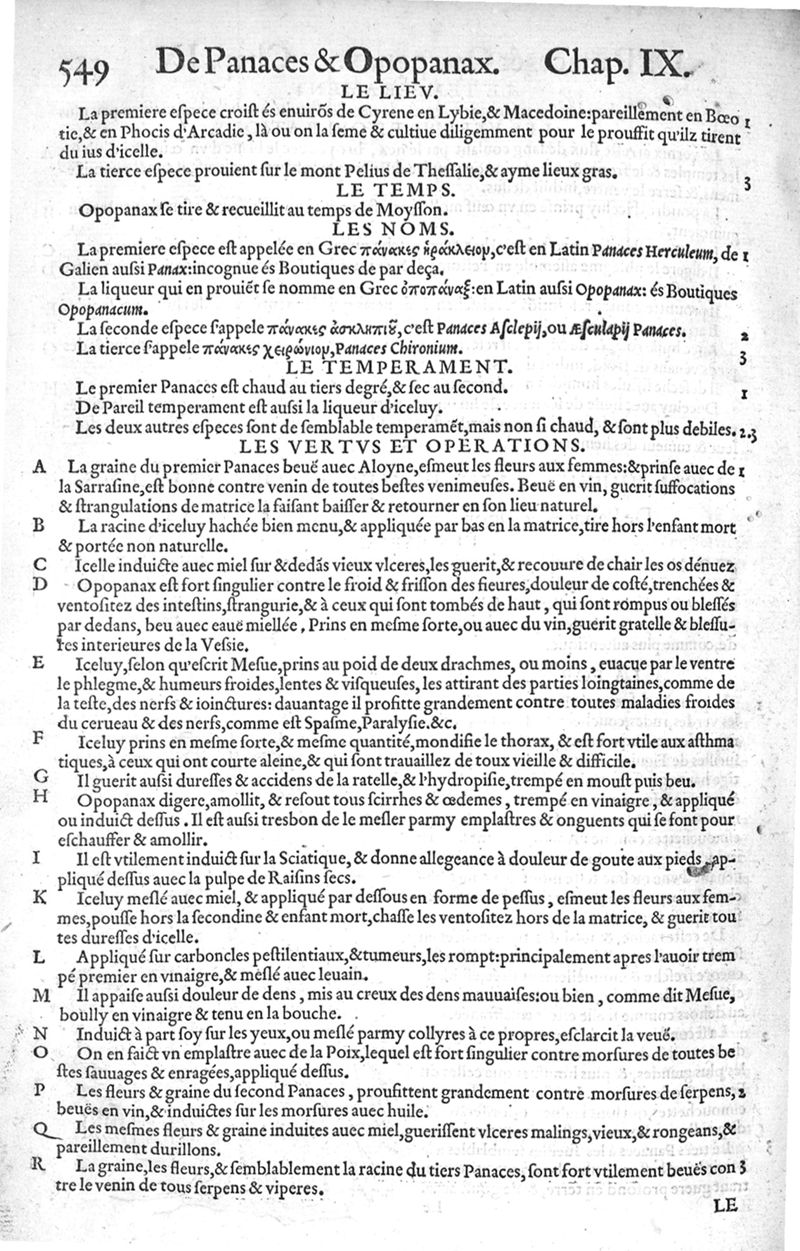 549 De Panaces & Opopanax. Chap. IX.
LE LIEV.
La premiere eſpece croiſt és enuirõs de Cyrene en Lybie,& Macedoine:pareillement en Bœo 1
tie,& en Phocis d'Arcadie, là ou on la ſeme & cultiue diligemment pour le prouffit qu'ilz tirent
du ius d'icelle.
La tierce eſpece prouient ſur le mont Pelius de Theſſalie,& ayme lieux gras. 3
LE TEMPS.
Opopanax ſe tire & recueillit au temps de Moyſſon.
LES NOMS.
La premiere eſpece eſt appelée en Grec πάνακες ἡράκλειον,c'eſt en Latin Panaces Herculeum, de 1
Galien auſſi Panax:incognue és Boutiques de par deça.
La liqueur qui en prouiẽt ſe nomme en Grec ὀποπάναξ:en Latin auſſi Opopanax: és Boutiques
Opopanacum.
La ſeconde eſpece ſ'appele πάνακες ἀσκληπιῦ, c'eſt Panaces Aſclepij,ou Æſculapij Panaces. 2
La tierce ſ'appele πάνακες χειρώνιον,Panaces Chironium. 3
LE TEMPERAMENT.
Le premier Panaces eſt chaud au tiers degré,& ſec au ſecond. 1
De Pareil temperament eſt auſſi la liqueur d'iceluy.
Les deux autres eſpeces ſont de ſemblable temperamẽt,mais non ſi chaud, & ſont plus debiles. 2.3
LES VERTVS ET OPERATIONS.
A La graine du premier Panaces beuë auec Aloyne,eſmeut les fleurs aux femmes:&prinſe auec de 1
la Sarraſine,eſt bonne contre venin de toutes beſtes venimeuſes. Beuë en vin, guerit ſuffocations
& ſtrangulations de matrice la faiſant baiſſer & retourner en ſon lieu naturel.
B La racine d'iceluy hachée bien menu,& appliquée par bas en la matrice,tire hors l'enfant mort
& portée non naturelle.
C Icelle induicte auec miel ſur &dedãs vieux vlceres,les guerit,& recouure de chair les os dénuez
D Opopanax eſt fort ſingulier contre le froid & friſſon des fieures,douleur de coſté,trenchées &
ventoſitez des inteſtins,ſtrangurie,& à ceux qui ſont tombés de haut , qui ſont rompus ou bleſſés
par dedans, beu auec eauë miellée . Prins en meſme ſorte,ou auec du vin,guerit gratelle & bleſſu-
res interieures de la Veſsie.
E Iceluy,ſelon qu'eſcrit Meſue,prins au poid de deux drachmes, ou moins , euacue par le ventre
le phlegme,& humeurs froides,lentes & viſqueuſes, les attirant des parties loingtaines,comme de
la teſte,des nerfs & ioinctures: dauantage il profitte grandement contre toutes maladies froides
du cerueau & des nerfs,comme eſt Spaſme,Paralyſie.&c.
F Iceluy prins en meſme ſorte,& meſme quantité,mondifie le thorax, & eſt fort vtile aux aſthma
tiques,à ceux qui ont courte aleine,& qui ſont trauaillez de toux vieille & difficile.
G Il guerit auſſi dureſſes & accidens de la ratelle,& l'hydropiſie,trempé en mouſt puis beu.
H Opopanax digere,amollit, & reſout tous ſcirrhes & œdemes , trempé en vinaigre , & appliqué
ou induict deſſus . Il eſt auſſi tresbon de le meſler parmy emplaſtres & onguents qui ſe font pour
eſchauffer & amollir.
I Il eſt vtilement induict ſur la Sciatique, & donne allegeance à douleur de goute aux pieds, ap-
pliqué deſſus auec la pulpe de Raiſins ſecs.
K Iceluy meſlé auec miel, & appliqué par deſſous en forme de peſſus , eſmeut les fleurs aux fem-
mes,pouſſe hors la ſecondine & enfant mort,chaſſe les ventoſitez hors de la matrice, & guerit tou
tes dureſſes d'icelle.
L Appliqué ſur carboncles peſtilentiaux,&tumeurs,les rompt:principalement apres l'auoir trem
pé premier en vinaigre,& méſlé auec leuain.
M Il appaiſe auſſi douleur de dens , mis au creux des dens mauuaiſes:ou bien , comme dit Meſue,
boully en vinaigre & tenu en la bouche.
N Induict à part ſoy ſur les yeux,ou meſlé parmy collyres à ce propres,eſclarcit la veuë.
O On en faict vn emplaſtre auec de la Poix,lequel eſt fort ſingulier contre morſures de toutes be
ſtes ſauuages & enragées,appliqué deſſus.
P Les fleurs & graine du ſecond Panaces , proufittent grandement contre morſures de ſerpens, 2
beuës en vin,& induictes ſur les morſures auec huile.
Q Les meſmes fleurs & graine induites auec miel,gueriſſent vlceres malings,vieux,& rongeans,&
pareillement durillons.
R La graine,les fleurs,& ſemblablement la racine du tiers Panaces, ſont fort vtilement beuës con 3
tre le venin de tous ſerpens & viperes.
LE